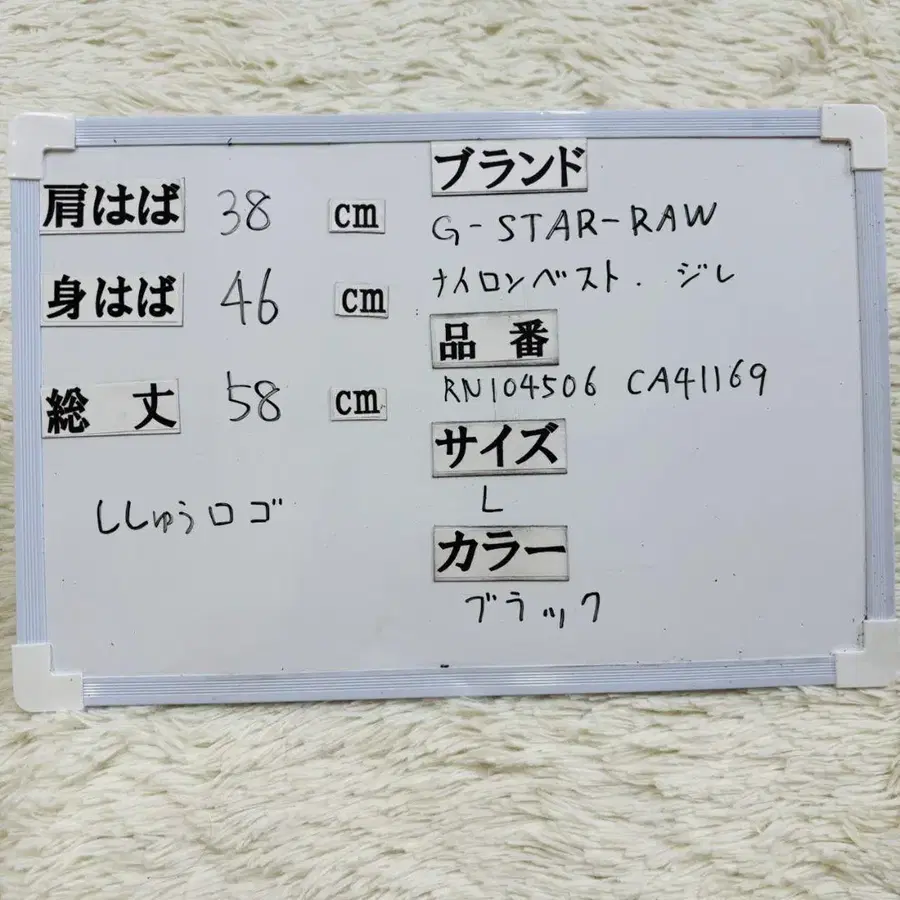 肩はば 38 cm
身はば 46 cm
総丈 58 cm
ししゅうロゴ
ブランド
G-STAR-RAW
ナイロンベスト. ジレ
品番
RN104506 CA41169
サイズ
L
カラー
ブラック